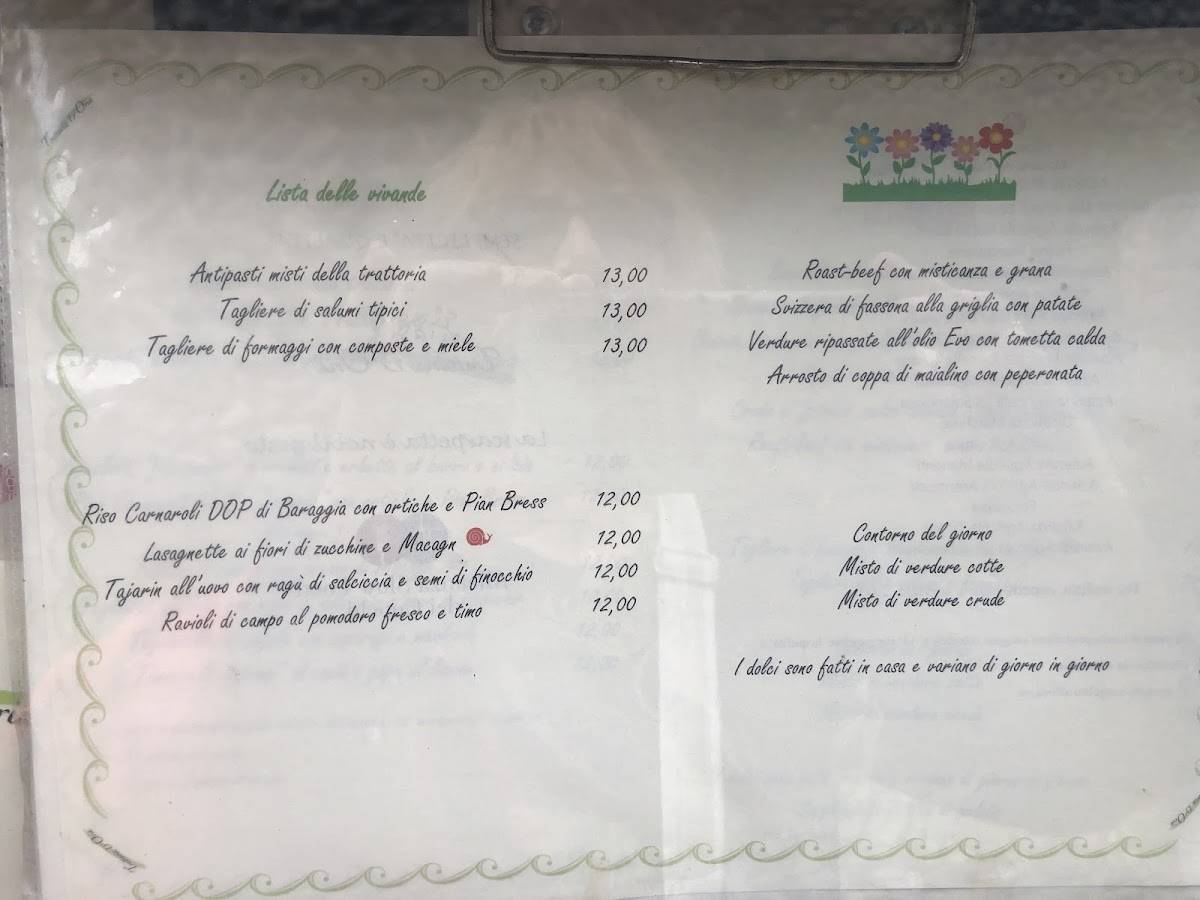 Lista delle vivande
Antipasti misti della trattoria 13,00
Tagliere di salumi tipici 13,00
Tagliere di formaggi con composte e miele 13,00
Riso Carnaroli DOP di Baraggia con ortiche e Pian Bress 12,00
Lasagnette ai fiori di zucchine e Macagn 12,00
Tajarin all'uovo con ragù di salciccia e semi di finocchio 12,00
Ravioli di campo al pomodoro fresco e timo 12,00
Roast-beef con misticanza e grana
Svizzera di fassona alla griglia con patate
Verdure ripassate all'olio Evo con tometta calda
Arrosto di coppa di maialino con peperonata
Contorno del giorno
Misto di verdure cotte
Misto di verdure crude
I dolci sono fatti in casa e variano di giorno in giorno